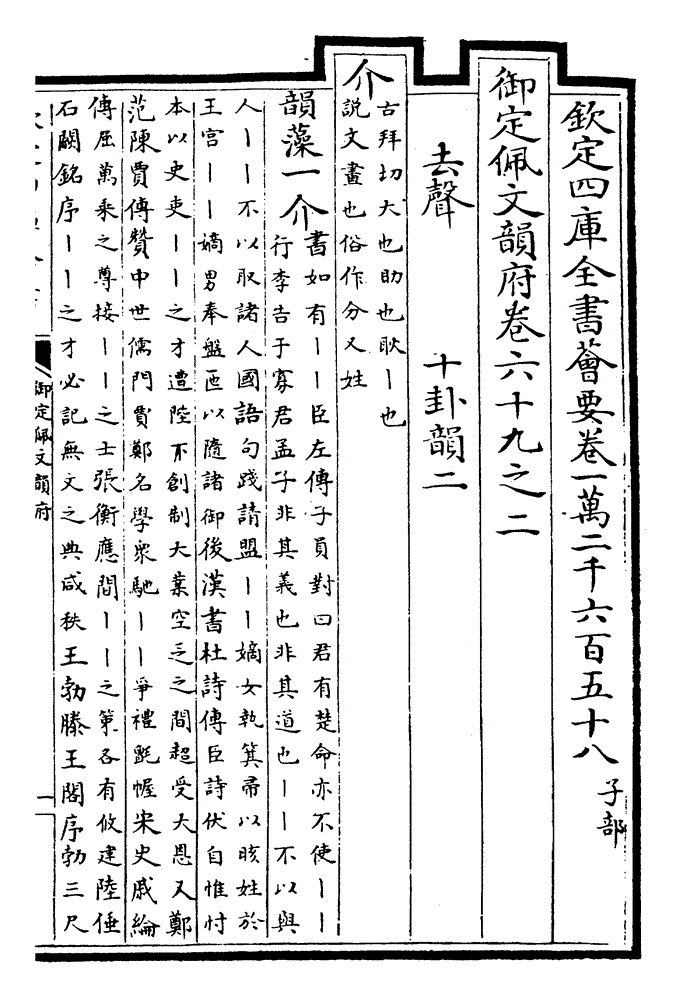 欽定四庫全書薈要卷一萬二千六百五十八 子部
御定佩文韻府卷六十九之二
去聲 十卦韻二
介 古拜切大也助也耿丨也
説文畫也俗作分又姓
韻藻一介 書如有丨丨臣左傳子員對曰君有楚命亦不使丨丨
行李告于寡君孟子非其義也非其道也丨丨不以與
人丨丨不以取諸人國語句踐請盟丨丨嫡女執箕帚以晐姓於
王宫丨丨嫡男奉盤匜以隨諸御後漢書杜詩傳臣詩伏自惟忖
本以史吏丨丨之才遭陸下創制大業空乏之間超受大恩又鄭
范陳賈傳贊中世儒門賈鄭名學衆馳丨丨爭禮氈幄宋史戚綸
傳屈萬乘之尊接丨丨之士張衡應間丨丨之策各有攸建陸倕
石闕銘序丨丨之才必記無文之典咸秩王勃滕王閣序勃三尺
御定佩文韻府
一